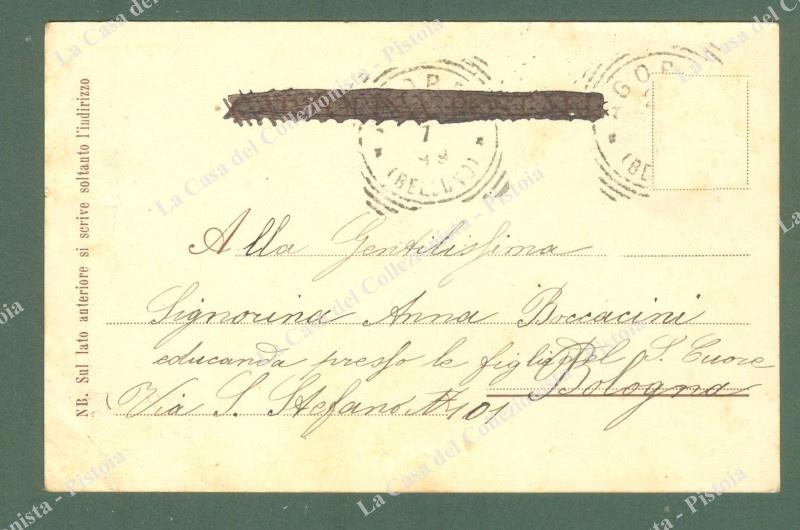 AGOR
7
99
(BELLUNO)
AGOR
(BE
NB. Sul lato anteriore si scrive soltanto l'indirizzo
Alla Gentilissima
Signorina Anna Boccacini
educanda presso le figlie del S. Cuore
Bologna
Via S. Stefano N 101
La Casa del Collezionista - Pistoia